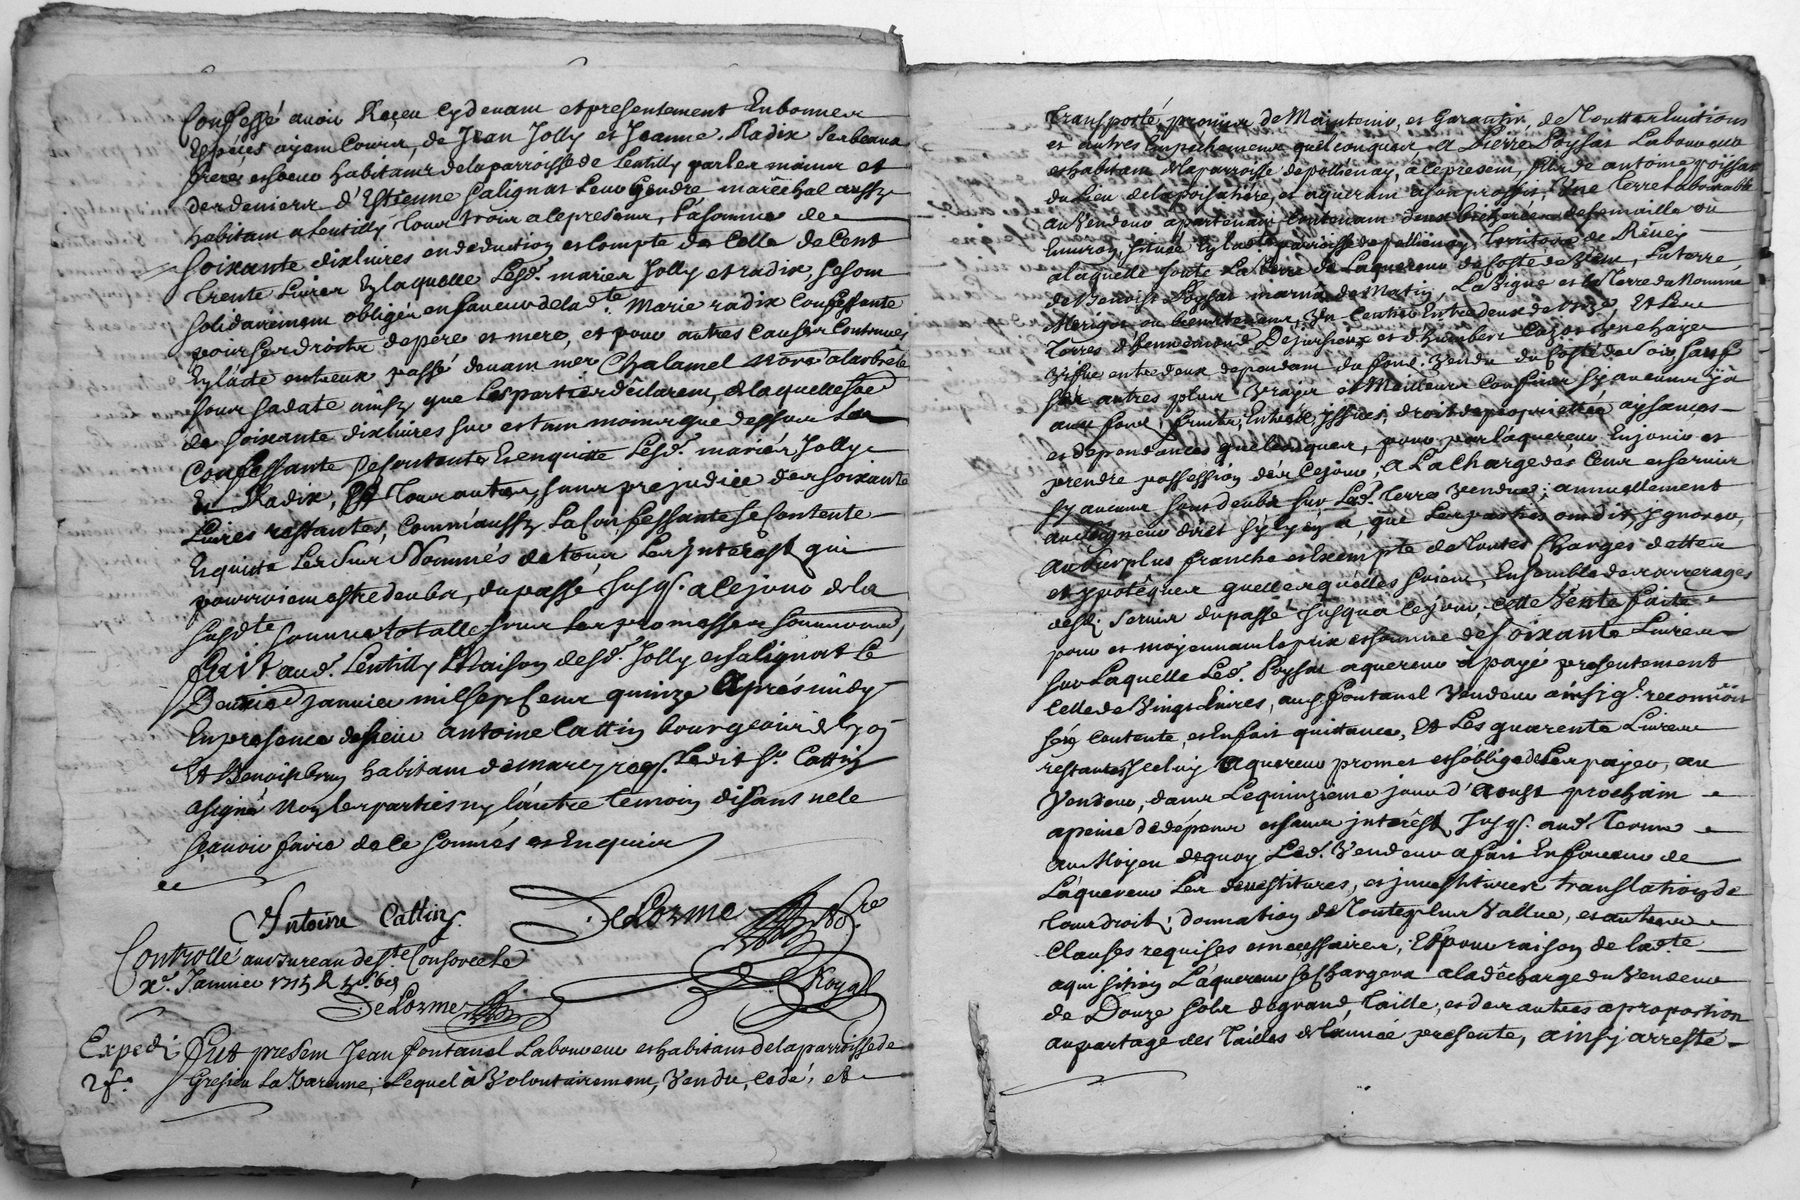 Confessé avoir Reçeu cydevant et presentement En bonnes
Especes ayant Cours, de Jean Jolly et Jeanne Radix Ses beaux
freres et soeur habitants de la parroisse de Lentilly par les mains et
des deniers d'Estienne Salignat Leur Gendre maréchal aussy
habitant a Lentilly tous trois a ce presents, La somme de
soixante dix livres en deduction et Compte de Celle de Cent
trente Livres En laquelle Lesd. mariés Jolly et radix, se sont
solidairement obligés en faveur de lad.te Marie radix Confessante
pour ses droits de pere et mere, et pour autres Causes Contenues
En l'acte entreux passé devant me Chalamel no.re a larbresle
sous sa date ainsy que Les parties déclarent, de laquelle so
de soixante dix livres sur et tant moins que dessus La
Confessante se Contente Et en quitte Lesd. mariés Jolly
Et Radix, Et tous autres, sans prejudice des soixante
Livres restantes, Comm'aussy La Confessante se Contente
Et quitte Les Sus Nommés de tous Les Interest qui
pourroient estre deubs, du passé Jusq. a ce jour de la
susd.te somme totalle sous Les promesses
Fait aud. Lentilly Maison desd. Jolly et Salignat Le
Deuxie janvier mil sept cent quinze Aprés midy
En presence de sieur antoine Cattin bourgeois de Lyon
Et Benoist brun habitant de marcy req.s Ledit Sr. Cattin
a signé Non les parties ny L'autre temoin disans ne le
sçavoir faire de ce sommés et Enquis
Antoine Cattin.
DeLorme No.re
Royal
Controllé au bureau de S.te Consorce le
x.e Janvier 1715 R
DeLorme
Expedi Fut present Jean fontanel Laboureur et habitant de la parroisse de
2 f. Gresieu La Varenne, Lequel à Volontairement, Vendu, cedé, et
transporté, promis de Maintenir, et Garantir, de Touttes Evictions
et autres Empechements quelconques A Pierre Poyssat Laboureur
et habitant Maparroisse de pollienay, a ce present, fils de antoine poissat
du Lieu de la poisatiere, et aquerant a son proffit, Une terre labourable
au Vendeur apartenant Contenant deux bicherées de semaille ou
Environ, située En lad.te parroisse de pollienay, territoire de
a laquelle joute La Terre de Laquereur du Costé de bize, La terre
de Benoist Poyssat marnas de Matin, La Vigne et la Terre du Nommé
Merigot ou bien
Terres d'Ennemond Dejussieux et d'Humbert une haye
Vifve entredeux dependant du fond Vendu du Costé de Soir, sauf
ses autres plus Vrayes et Meilleurs Confins sy aucuns y à
aux fond, fruits, Entrées, yssues, droits de proprietté, aysances
et dependances quelconques, pour par l'aquereur En jouir et
prendre possession dés Ce jour, A La Charge des Cens et servis
sy aucuns sont deubs sur Lad. Terre Vendue, annuellement
au seigneur direct sy y en a, que Les parties ont dit ygnorer,
au surplus franche et Exempte de toutes Charges dettes
et ypotèques quelles quélles soient, Ensemble des arrerages
desd. Servis du passé Jusqua Ce jour, Cette Vente faite
pour et moyennant le prix et somme de soixante Livres
sur Laquelle Led. Poyssat aquereur à payé presentement
Celle de Vingt Livres, aud. fontanel Vendeur reconnoit
s'en Contente, et En fait quittance, Et Les quarente Livres
restantes Icelluy Aquereur promet et s'oblige de Les payer, au
Vendeur, dans Le quinzieme jour d'Aoust prochain
a peine de dépens et sans interest, Jusq. aud. Terme
au Moyen dequoy Led. Vendeur a fait En faveur de
L'aquereur Les devestitures, et jnvestitures translations de
tous droit, donnation de Toute plus Vallue, et autres
Clauses requises et necessaires, Et pour raison de lad.te
aquisition L'aquereur se Chargera a la décharge du Vendeur
de Douze sols de grand Taille, et des autres a proportion
au partage des Tailles de l'année presente, ainsy arresté